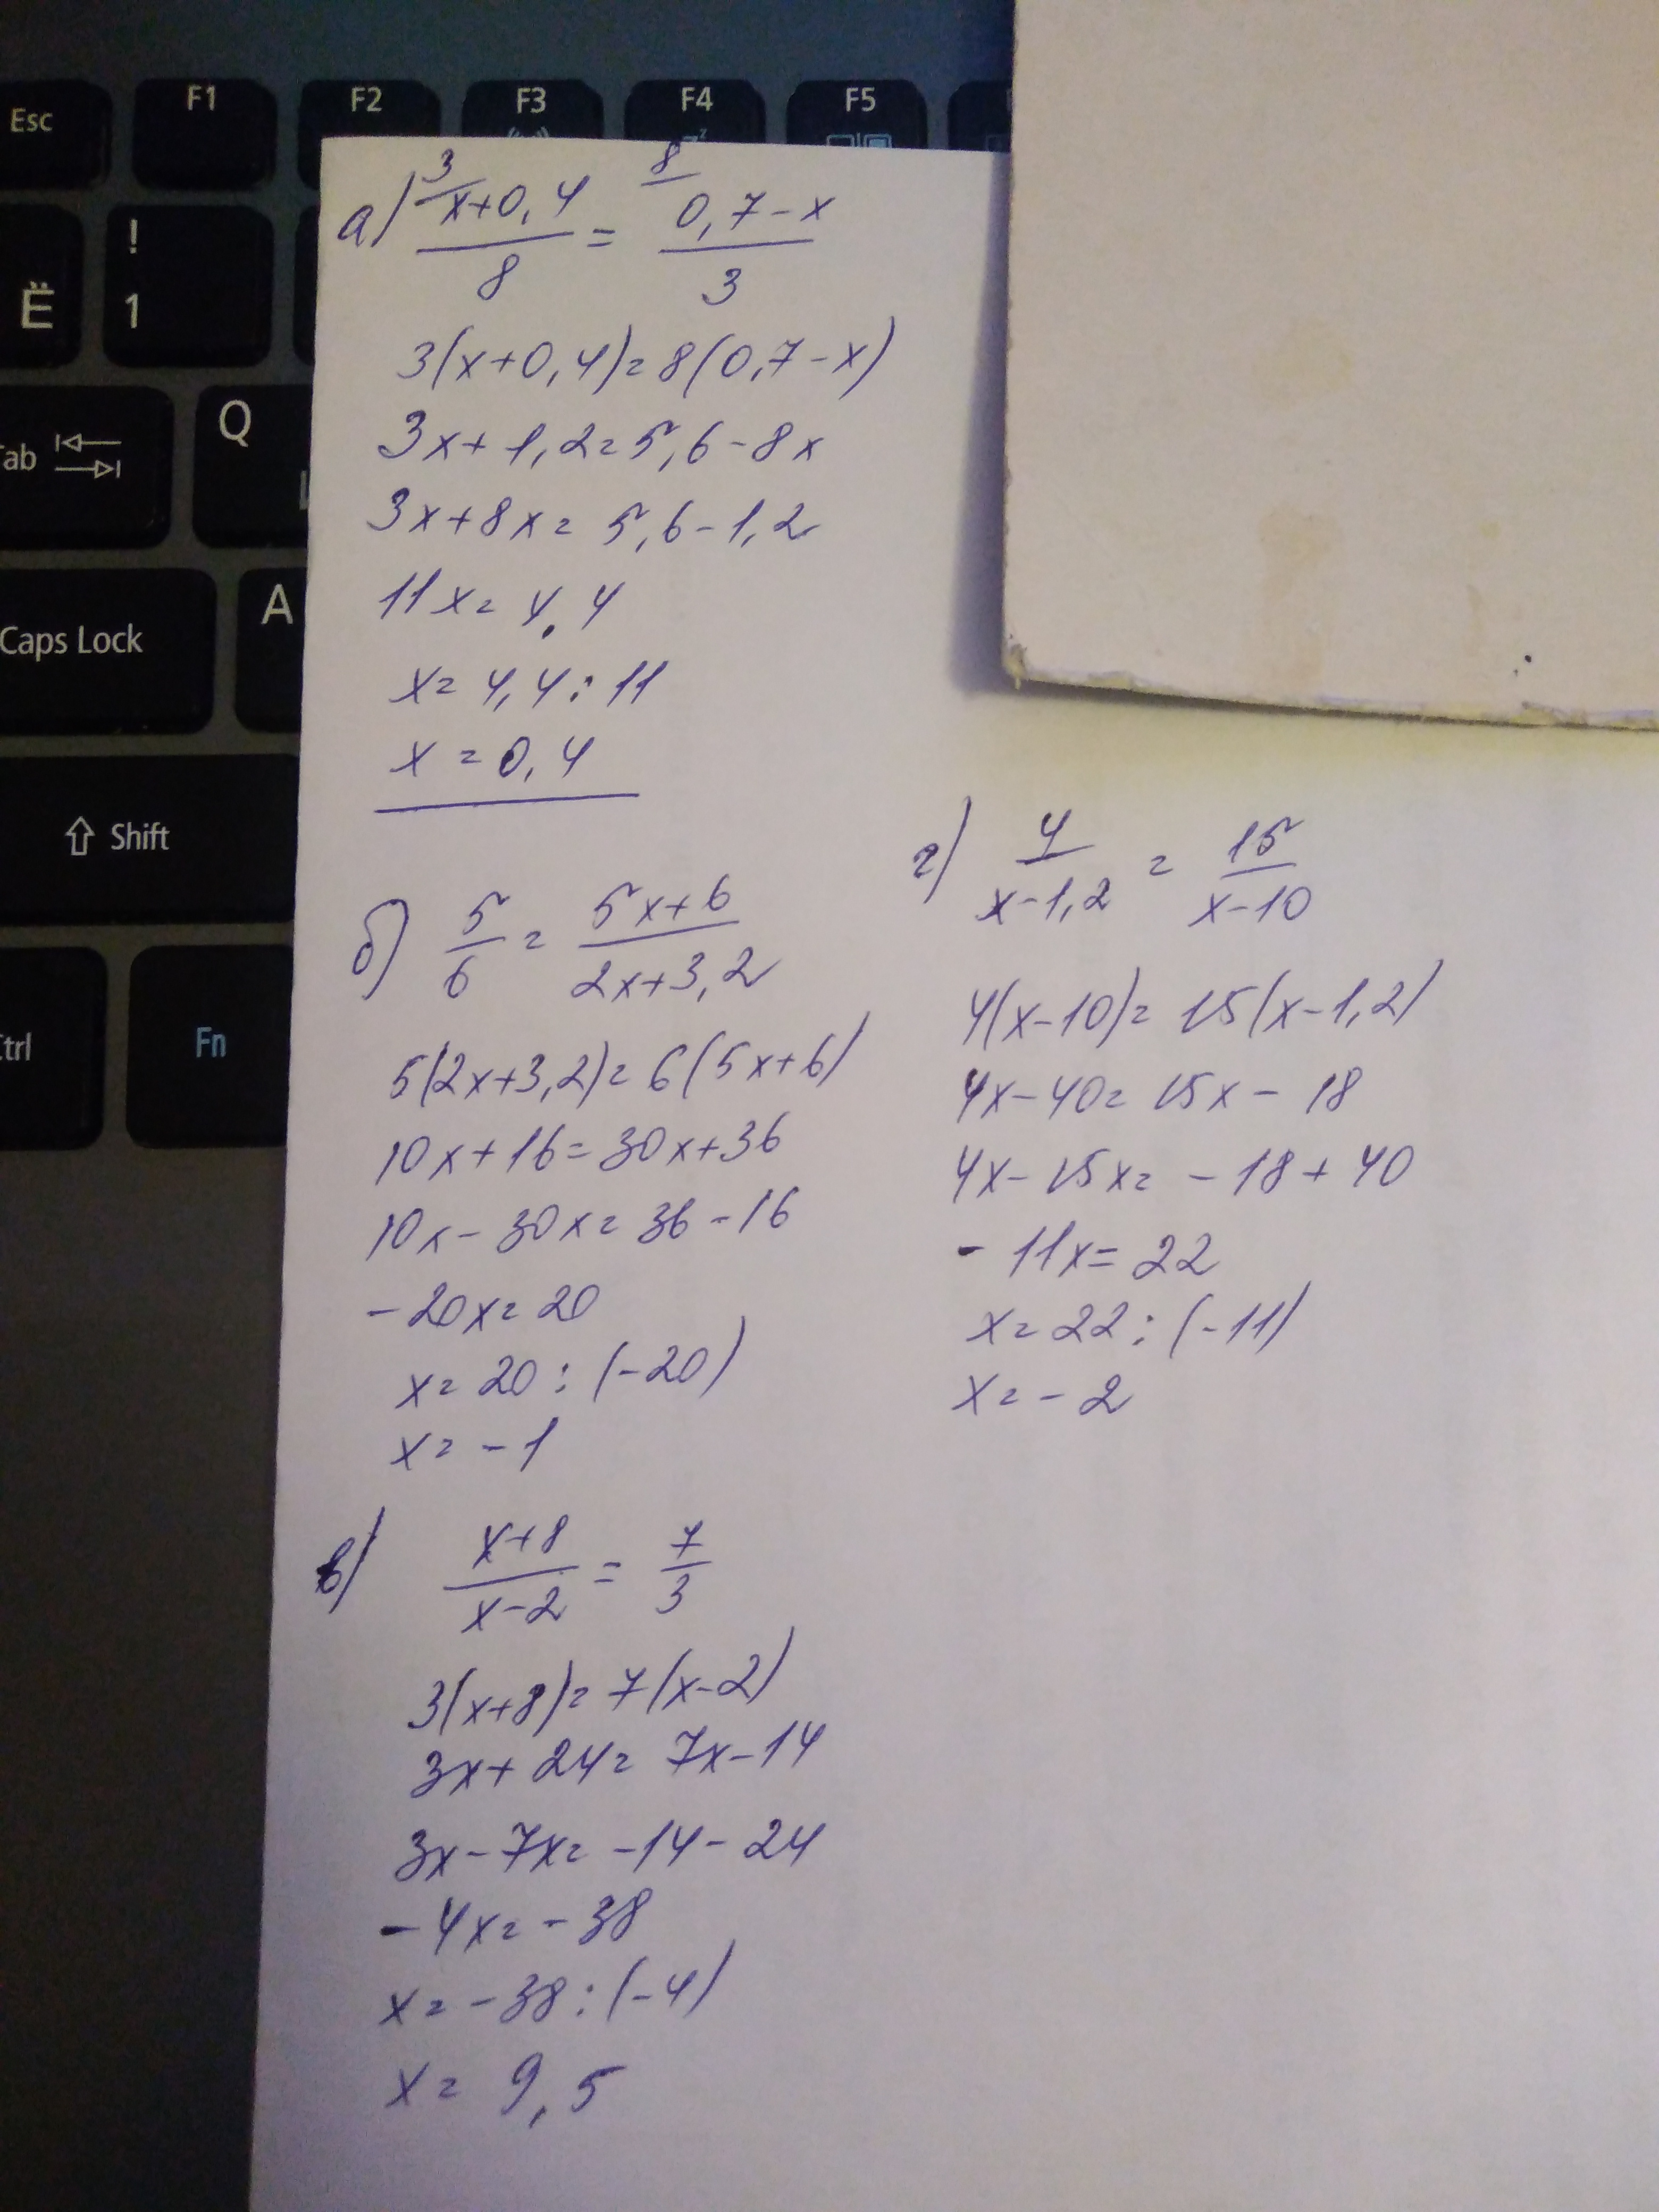 Esc F1 F2 F3 F4 F5
Ё ! 1
Tab Q
Caps Lock A
Shift
Ctrl Fn
а) 3/ (x+0,4)/8 = 8/ (0,7-x)/3
3(x+0,4)=8(0,7-x)
3x+1,2=5,6-8x
3x+8x=5,6-1,2
11x=4,4
x=4,4:11
x=0,4
б) 5/6 = (5x+6)/(2x+3,2)
5(2x+3,2)=6(5x+6)
10x+16=30x+36
10x-30x=36-16
-20x=20
x=20:(-20)
x=-1
в) (x+8)/(x-2) = 7/3
3(x+8)=7(x-2)
3x+24=7x-14
3x-7x=-14-24
-4x=-38
x=-38:(-4)
x=9,5
г) 4/(x-1,2) = 15/(x-10)
4(x-10)=15(x-1,2)
4x-40=15x-18
4x-15x=-18+40
-11x=22
x=22:(-11)
x=-2